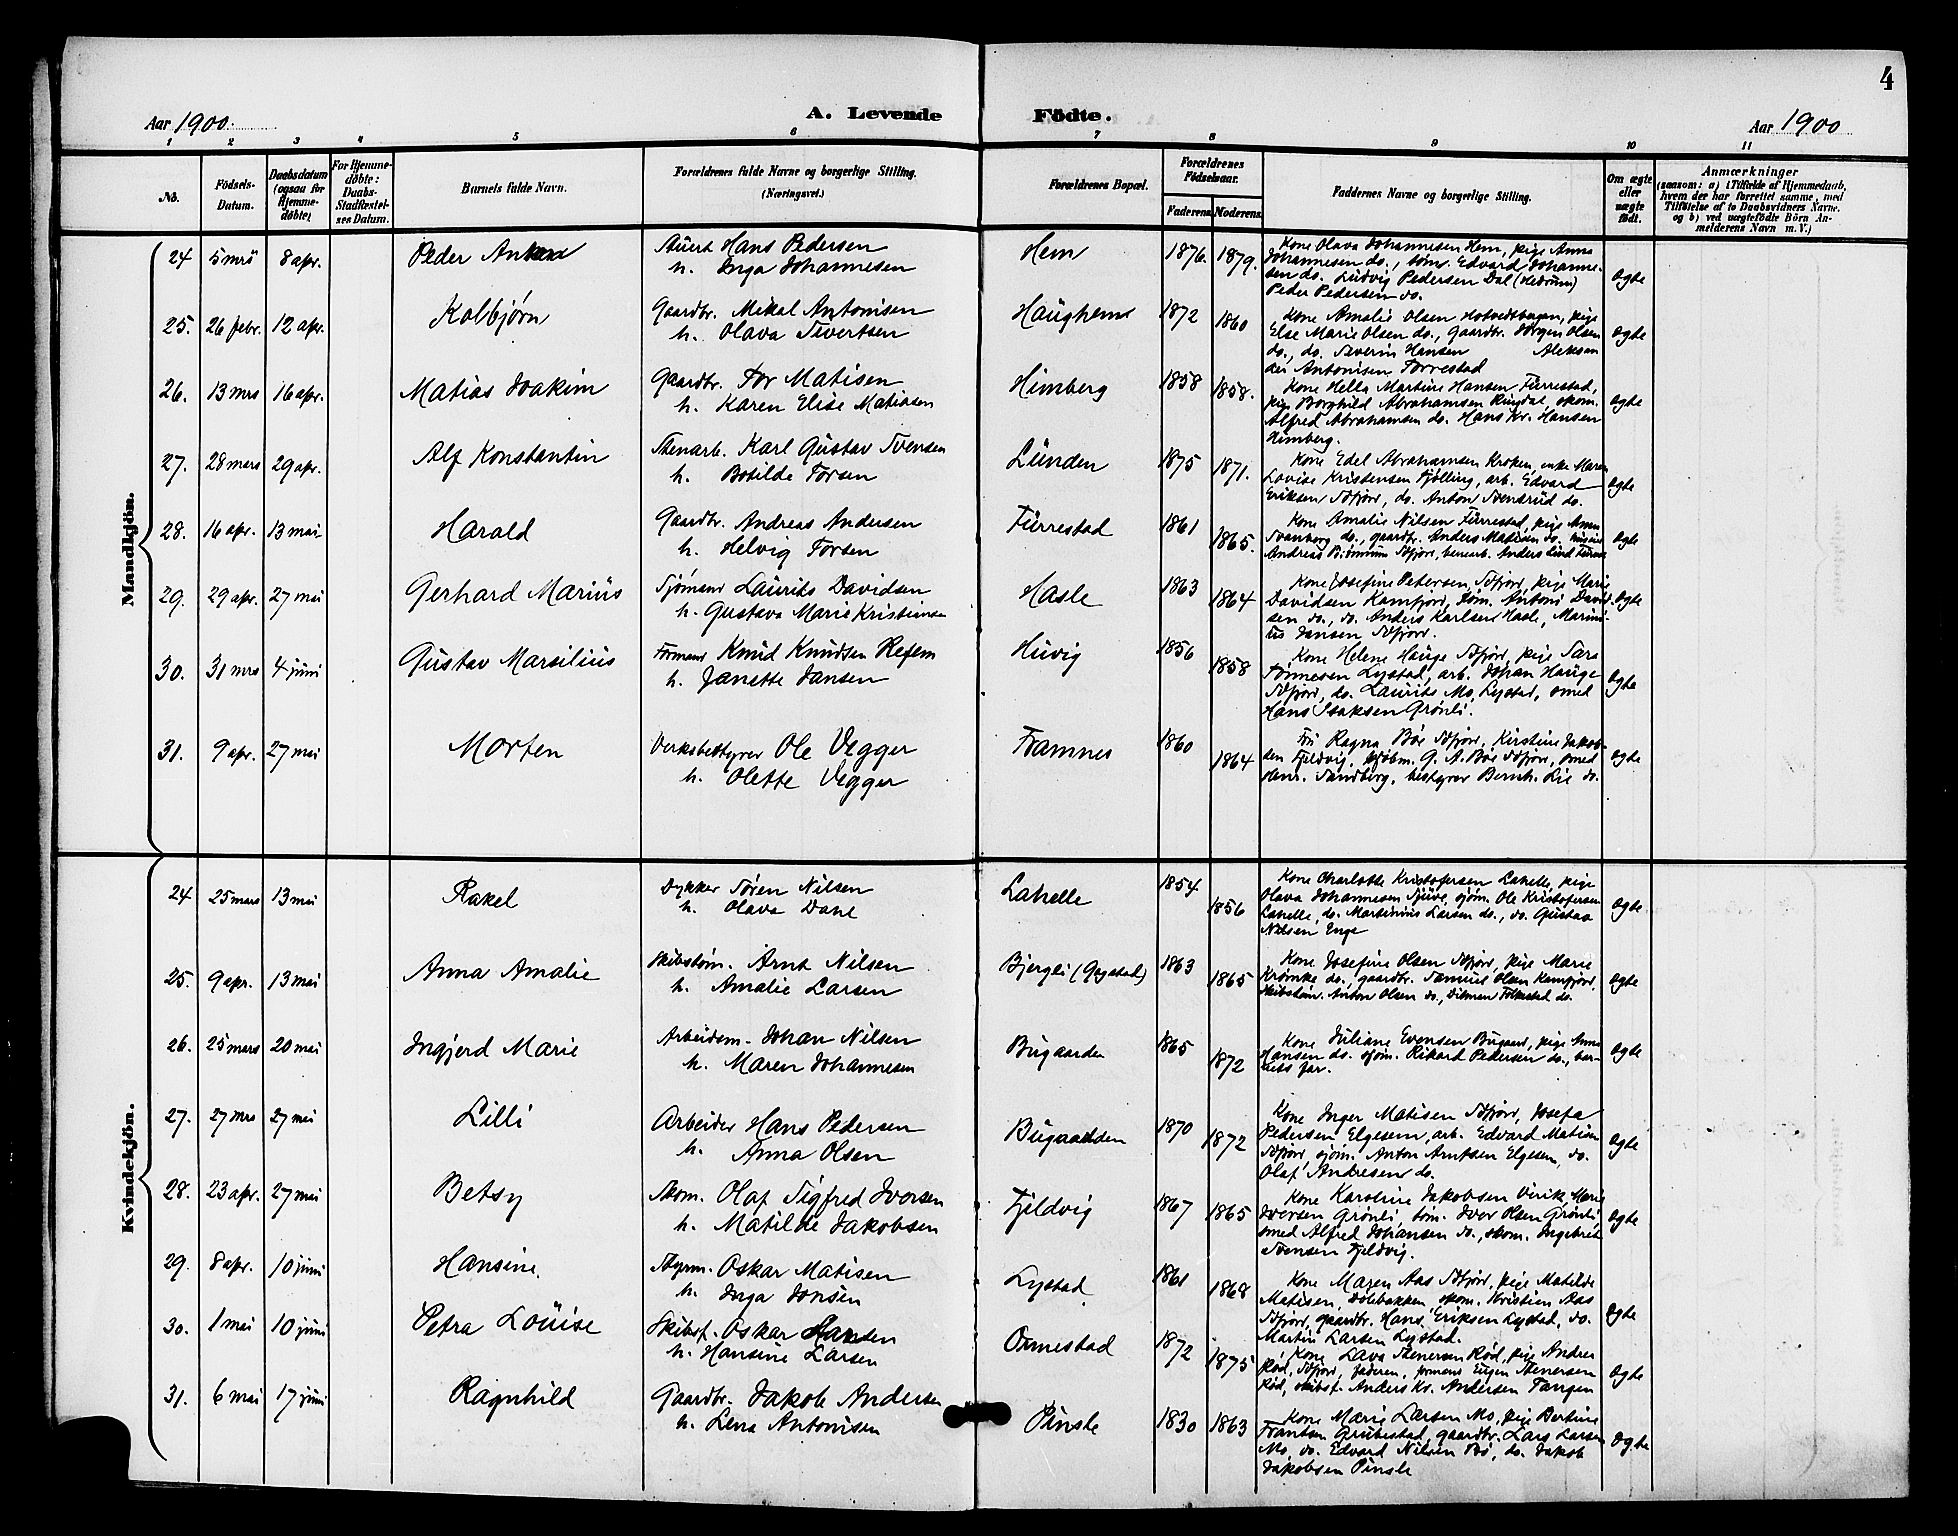 4
Aar 1900.
A. Levende Födte.
Aar 1900
1 2 3 4 5 6 7 8 9 10 11
No.
Födsels-Datum.
Daabsdatum (ogsaa for Hjemmedöbte)
For Hjemmedöbte: Daabs-Stadfæstelses Datum.
Barnets fulde Navn.
Forældrenes fulde Navne og borgerlige Stilling. (Næringsvei.)
Forældrenes Bopæl.
Forældrenes Födselsaar.
Faderens. Moderens.
Faddernes Navne og borgerlige Stilling.
Om ægte eller uægte födt.
Anmærkninger
(saasom: a) i Tilfælde af Hjemmedaab, hvem der har forrettet samme, med Tilföielse af to Daabsvidners Navne. og b) ved uægtefödte Börn Anmelderens Navn m. V.)
Mandkjön.
24 5 mrs 8 apr. Peder Anton
Stuert Hans Pedersen
h. Inga Johannesen
Hem 1876. 1879.
Kone Olava Johannesen Hem, pige Anna
Johannesen do., tøm. Edvard Johanne-
sen do. Ludvig Pedersen Dal (Hedrum)
Peder Pedersen do.
Ægte
25. 26 febr. 12 apr. Kolbjørn
Gaardbr. Mikal Antonisen
h. Olava Sivertsen
Haughem 1872 1860
Kone Amalie Olsen Hotvedthagen, pige
Else Marie Olsen do., Gaardbr. Jørgen Olsen
do., do. Severin Hansen Aleksan
der Antonisen Torrestad
Ægte
26. 13 mrs 16 apr. Matias Joakim
Gaardbr. Tor Matisen
h. Karen Elise Matiasen
Himberg 1858 1858.
Kone Hella Martine Hansen Furrestad,
pige Borghild Abrahamsen Ringdal, skom.
Alfred Abrahamsen do. Hans Kr. Hansen
Himberg.
Ægte
27. 28 mars 29 apr. Alf Konstantin
Stenarb. Karl Gustav Svensen
h. Botilde Torsen
Lunden 1875 1871.
Kone Edel Abrahamsen Kroken, enke Maren
Lovise Kristensen Tjølling, arb. Edvard
Eriksen Sdfjord, do. Anton Svensrud do.
Ægte
28. 16 apr. 13 mai Harald
Gaardbr. Andreas Andersen
h. Helvig Torsen
Furrestad 1861 1865.
Kone Amalie Nilsen Furrestad, pige Anna
Svanberg do., gaardbr. Anders Matisen do.
Ægte
29. 29 apr. 27 mai Gerhard Marius
Sjømand Laurits Davidsen
h. Gustava Marie Kristiansen
Hasle 1863 1864
Kone Josefine Petersen, Sdfjord, pige Marie
Davidsen Kamfjord, tøm. Antoni David-
sen do., do. Anders Karlsen Hasle, Marini-
us Jansen Sdfjord.
Ægte
30. 31 mrs 4 juni Gustav Marsilius
Formand Knud Knudsen Refem
h. Janette Jansen
Huvig 1856 1858
Kone Helene Hauge Sdfjord, pige Sara
Tønnesen Lystad, arb. Johan Hauge
Sdfjord, do. Laurits Mo, Lystad, smed
Hans Isaksen Grønli.
Ægte
31. 9 apr. 27 mai Morten
Verksbestyrer Ole Vegger
h. Olette Vegger
Framnes 1860 1864
Fru Ragna Bøe Sdfjord, Kirstine Jakob-
sen Fjeldvig, kjøbm. G. A. Bøe Sdfjord, smed
Hans. Sandberg, bestyrer Bernh. Lie do.
Ægte
Kvindekjön.
24 25 mars 13 mai Rakel
Dykker Søren Nilsen
h. Olava Dane
Lahelle 1854 1856
Kone Charlotte Kristofersen Lahelle, pige
Olava Johannesen Tjuve, sjøm. Ole Kristofersen
Lahelle, do. Marsinius Larsen do., do. Gustav
Nilsen Enge
Ægte
25. 9 apr. 13 mai Anna Amalie
Skibstøm. Arnt Nilsen
h. Amalie Larsen
Bjergli (Gogstad) 1863 1865
Kone Josefine Olsen Sdfjord, pige Marie
Krømke do., gaardbr. Samuel Olsen Kamfjord,
Skibstøm. Anton Olsen do., Ditman Folkestad do.
Ægte
26. 25 mars 20 mai Ingjerd Marie
Arbeidsm. Johan Nilsen
h. Maren Johannesen
Bugaarden 1865 1872
Kone Juliane Evensen Bugaard, pige Anna
Hansen do. sjøm. Rikard Pedersen do., bar-
nets far.
Ægte
27. 27 mrs 27 mai Lilli
Arbeider Hans Pedersen
h. Anna Olsen
Bugaarden 1870 1872
Kone Inger Matisen Sdfjord, Josefa
Pedersen Elgesem, arb. Edvard Matisen
Sdfjord, sjøm. Anton Arntsen Elgesem, do.
Olaf Andresen do.
Ægte
28. 23 apr. 27 mai Betsy
Skom. Olaf Sigfred Iversen
h. Matilde Jakobsen
Fjeldvig 1867 1865
Kone Karoline Jakobsen Virik, Marie
Iversen Grønli, tøm. Iver Olsen Grønli,
smed Alfred Johansen do., skom. Ingebret
Svensen Fjeldvig.
Ægte
29. 8 apr. 10 juni Hansine.
Styrm. Oskar Matisen
h. Inga Jonsen
Lystad 1861 1868
Kone Maren Aas Sdfjord, pige Matilde
Matisen, Dølebakken, skom. Kristian Aas
Sdfjord, gaardbr. Hans Eriksen Lystad, do.
Martin Larsen Lystad.
Ægte
30. 1 mai 10 juni Petra Louise
Skibsf. Oskar Hansen
h. Hansine Larsen
Ormestad 1872 1875
Kone Lava Stenersen Rød, pige Andrea
Rød, Sdfjord, faderen, formand Eugen Stenersen
Rød, skibsf. Anders Kr. Andersen Tangen
Ægte
31. 6 mai 17 juni Ragnhild
Gaardbr. Jakob Andersen
h. Lena Antonisen
Pinsle 1830 1863
Kone Marie Larsen Mo, pige Bertine
Frantsen Grubestad, gaardbr. Lars Larsen
Mo, do. Edvard Nilsen Bø, do. Jakob
Jakobsen Pinsle
Ægte